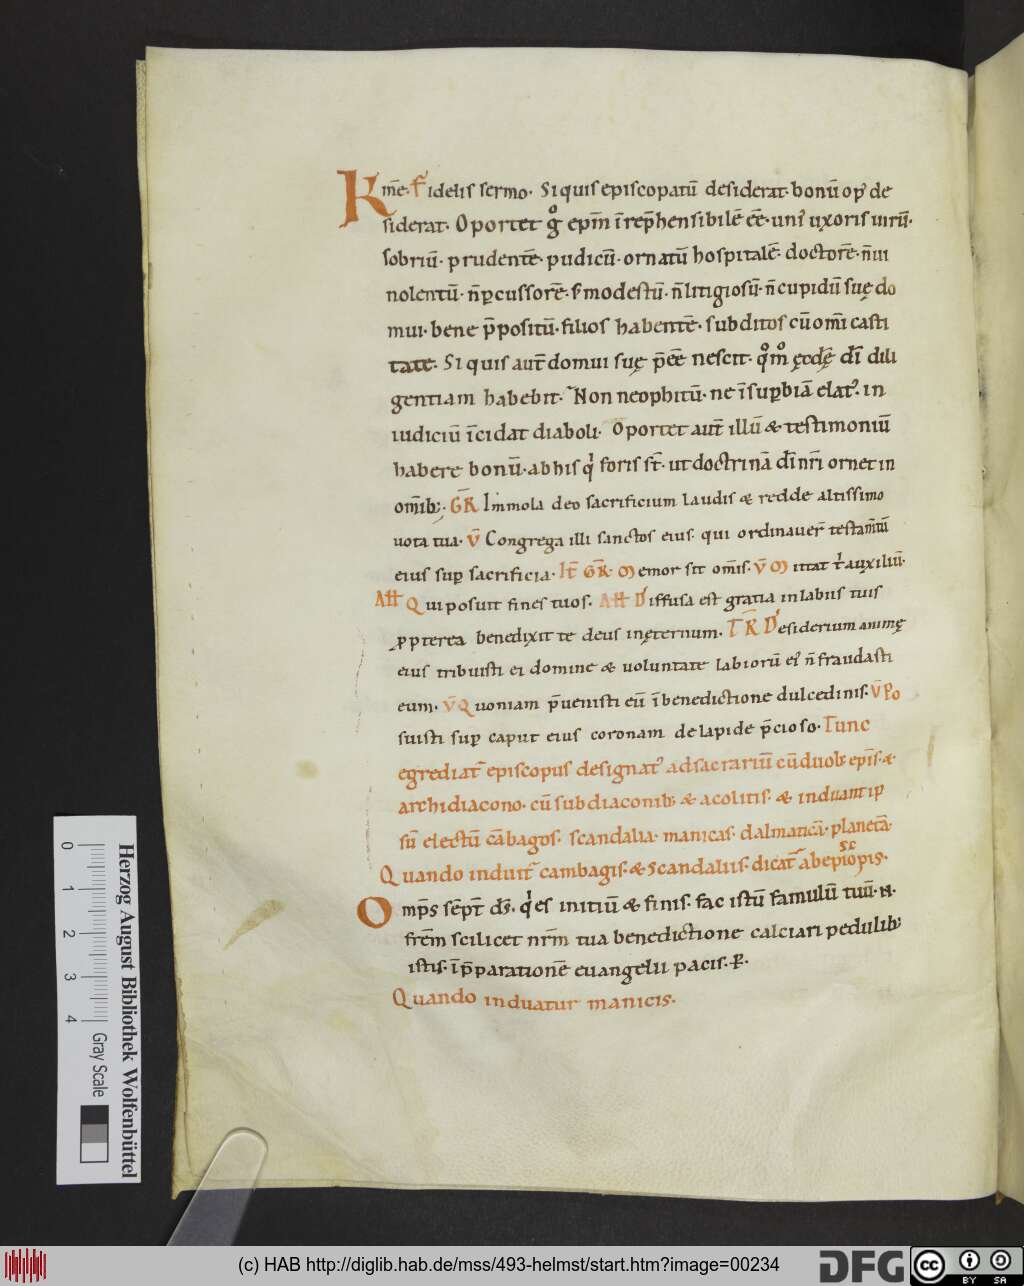 Km̄e. Fidelis sermo. Si quis episcopatū desiderat. bonū op' de
siderat. Oportet g° ep̄m īrep̄hensibilē eē. uni' uxoris uirū.
sobriū. prudentē. pudicū. ornatū hospitalē. doctorē. n̄ ui
nolentū. n̄ p̱cussorē. s; modestū. n̄ litigiosū. n̄ cupidū suę do
mui. bene p̄positū. filios habentē. subditos cū om̄i casti
tate. Si quis aut̄ domui suę p̄eē nescit. q°m° ęcclę dī dili
gentiam habebit. Non neophitū. ne ī sup̱biā elat'. in
iudiciū īcidat diaboli. Oportet aut̄ illū & testimoniū
habere bonū. ab his q' foris st̄. ut doctrinā dī nr̄i ornet in
om̄ib;. GR̄ Immola deo sacrificium laudis & redde altissimo
uota tua. v̄ Congrega illi sanctos eius. qui ordinauer̄ testam̄tū
eius sup̱ sacrificia. It̄ GR̄. Memor sit om̄is. v̄ Mittat t' auxiliū.
All Qui posuit fines tuos. All Diffusa est gratia in labiis tuis
p̱pterea benedixit te deus in ęternum. TR̄ Desiderium animę
eius tribuisti ei domine & uoluntate labiorū ei' n̄ fraudasti
eum. v̄ Quoniam p̄uenisti eū ī benedictione dulcedinis. v̄ Po
suisti sup̱ caput eius coronam de lapide p̄cioso. Tunc
egrediat' episcopus designat' ad sacrariū cū duob; ep̄is. &
archidiacono. cū subdiaconib; & acolitis. & induant ip
sū electū cābagos. scandalia. manicas. dalmaticā. planetā.
Quando induit̄ cambagis. & scandaliis. dicat̄ ab ep̄iscopis.
Omp̄s sēpt̄ ds̄. q' es initiū & finis. fac istū famulū tuū .N.
fr̄em scilicet nr̄m tua benedictione calciari pedulib;
istis. ī p̄parationē euangelii pacis. P̱.
Quando induatur manicis.
Herzog August Bibliothek Wolfenbüttel
0 1 2 3 4
Gray Scale
(c) HAB http://diglib.hab.de/mss/493-helmst/start.htm?image=00234
DFG
cc BY SA